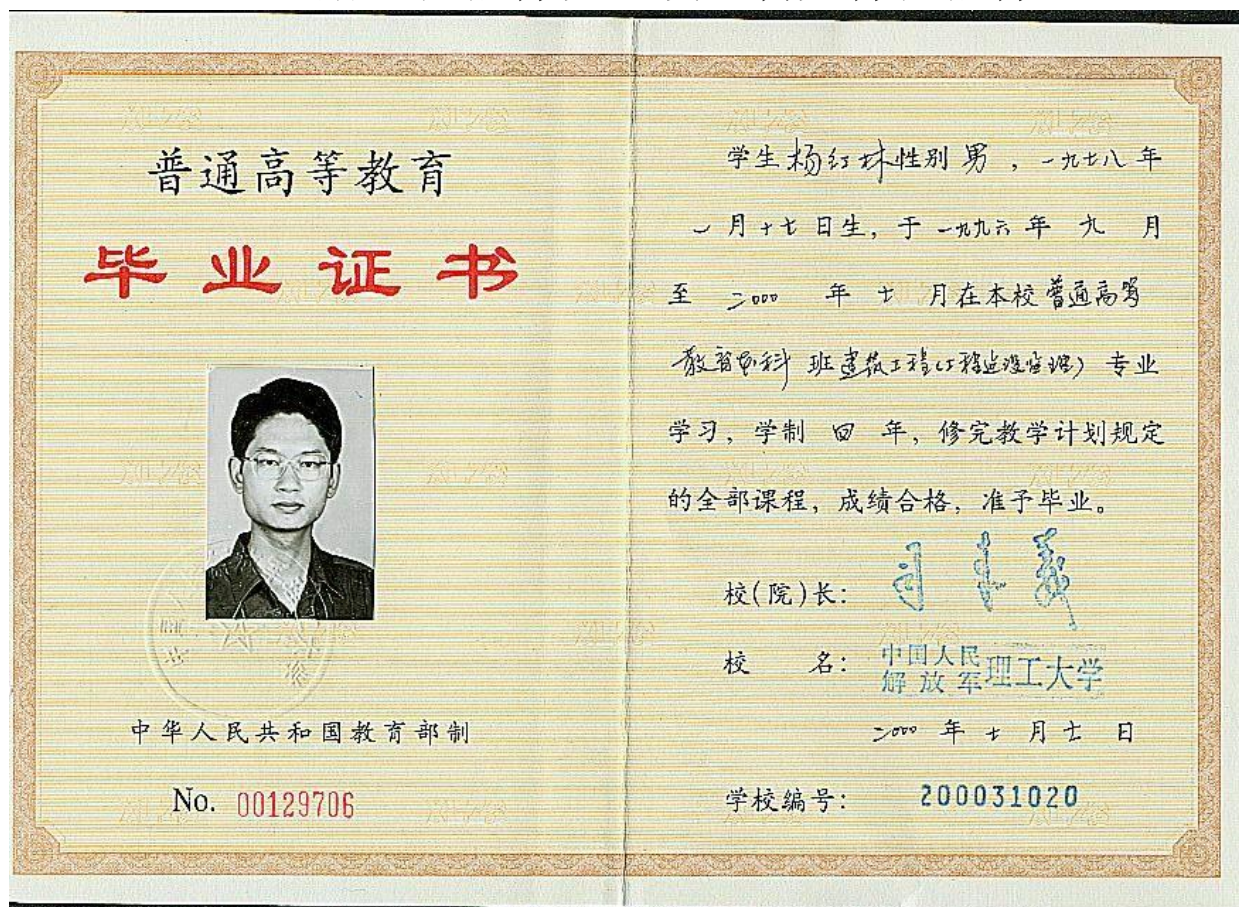 普通高等教育
毕业证书
中华人民共和国教育部制
No. 00129706
学生杨红林性别 男 ，一九七八年
一月十七日生，于一九九六年 九 月
至 二000 年 七 月在本校普通高等
教育本科 班建筑工程(工程建设监理) 专业
学习，学制 四 年，修完教学计划规定
的全部课程，成绩合格，准予毕业。
校(院)长：
校 名： 中国人民解放军理工大学
二000 年 七 月 七 日
学校编号： 200031020